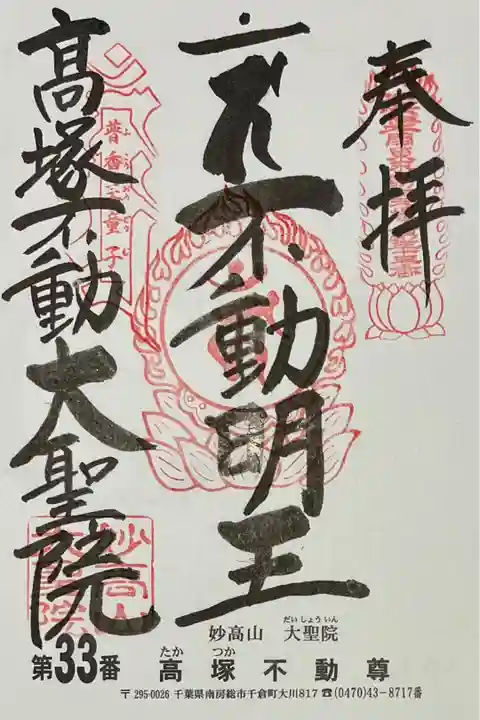 奉拝
不動明王
高塚不動
大聖院
普香王童子
妙高山
大聖院
妙高山 大聖院
だいしょういん
第33番 高塚不動尊
たか つか
〒295-0026 千葉県南房総市千倉町大川817 ☎(0470)43-8717番